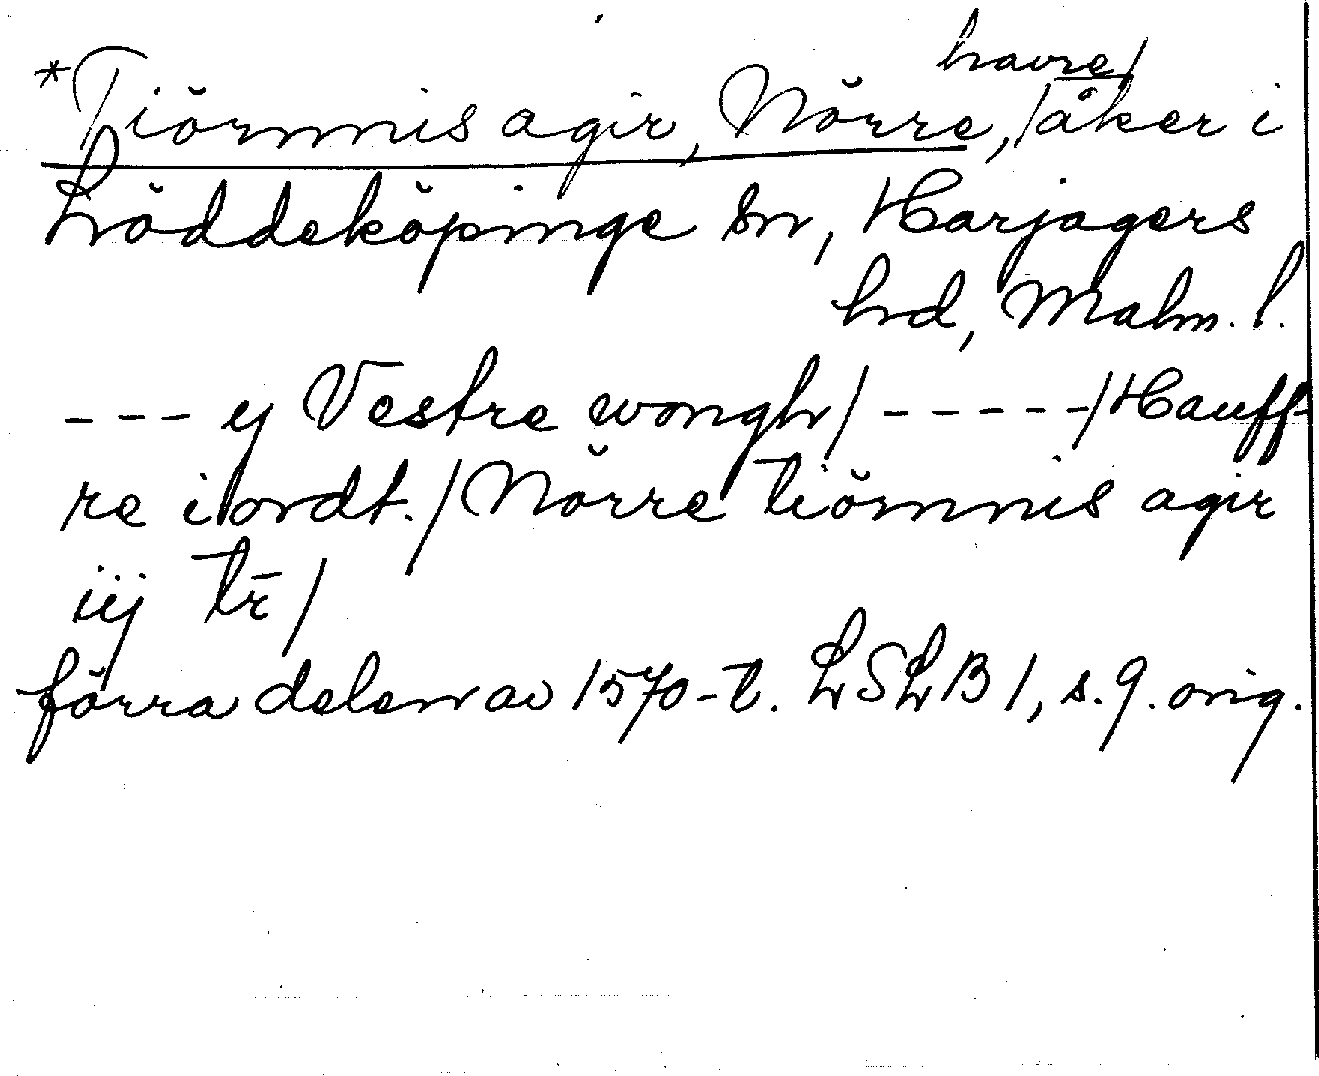 havre/
*Tiörnnis agir, Nörre, /åker i
Löddeköpinge sn, Harjagers
hd, Malm. l.
--- ij Vestre wongh/ -----/Hauff-
re iordt./Nörre tiörnnis agir
iij tr̄/
förra delen av 1570-t. LSLB 1, s. 9. orig.